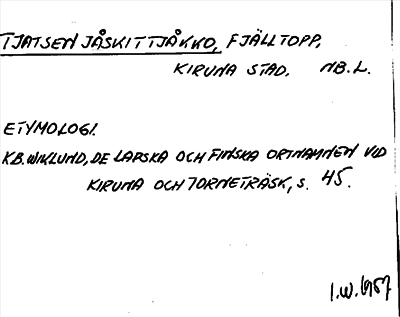 TJATSENJÅSKITTJÅKKO, FJÄLLTOPP,
KIRUNA STAD. NB.L.
ETYMOLOGI.
K.B. WIKLUND, DE LAPSKA OCH FINSKA ORTNAMNEN VID
KIRUNA OCH TORNETRÄSK, S. 45.
I.W. 1957